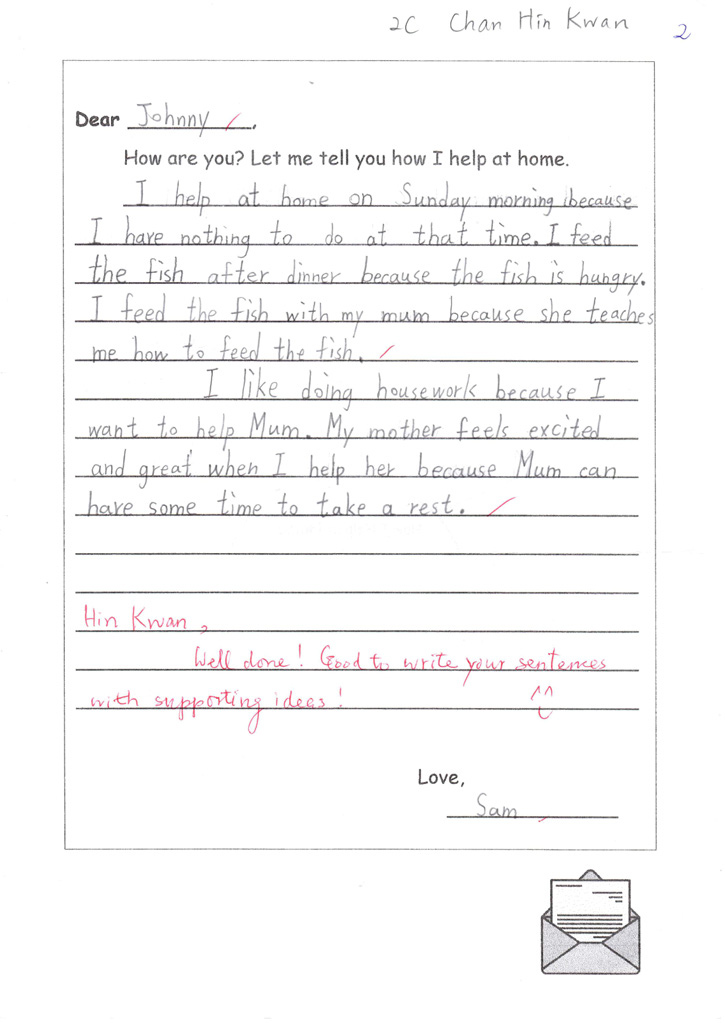 2C Chan Hin Kwan 2
Dear Johnny,
How are you? Let me tell you how I help at home.
I help at home on Sunday morning because
I have nothing to do at that time. I feed
the fish after dinner because the fish is hungry.
I feed the fish with my mum because she teaches
me how to feed the fish.
I like doing housework because I
want to help Mum. My mother feels excited
and great when I help her because Mum can
have some time to take a rest.
Hin Kwan,
Well done! Good to write your sentences
with supporting idees!
Love,
Sam